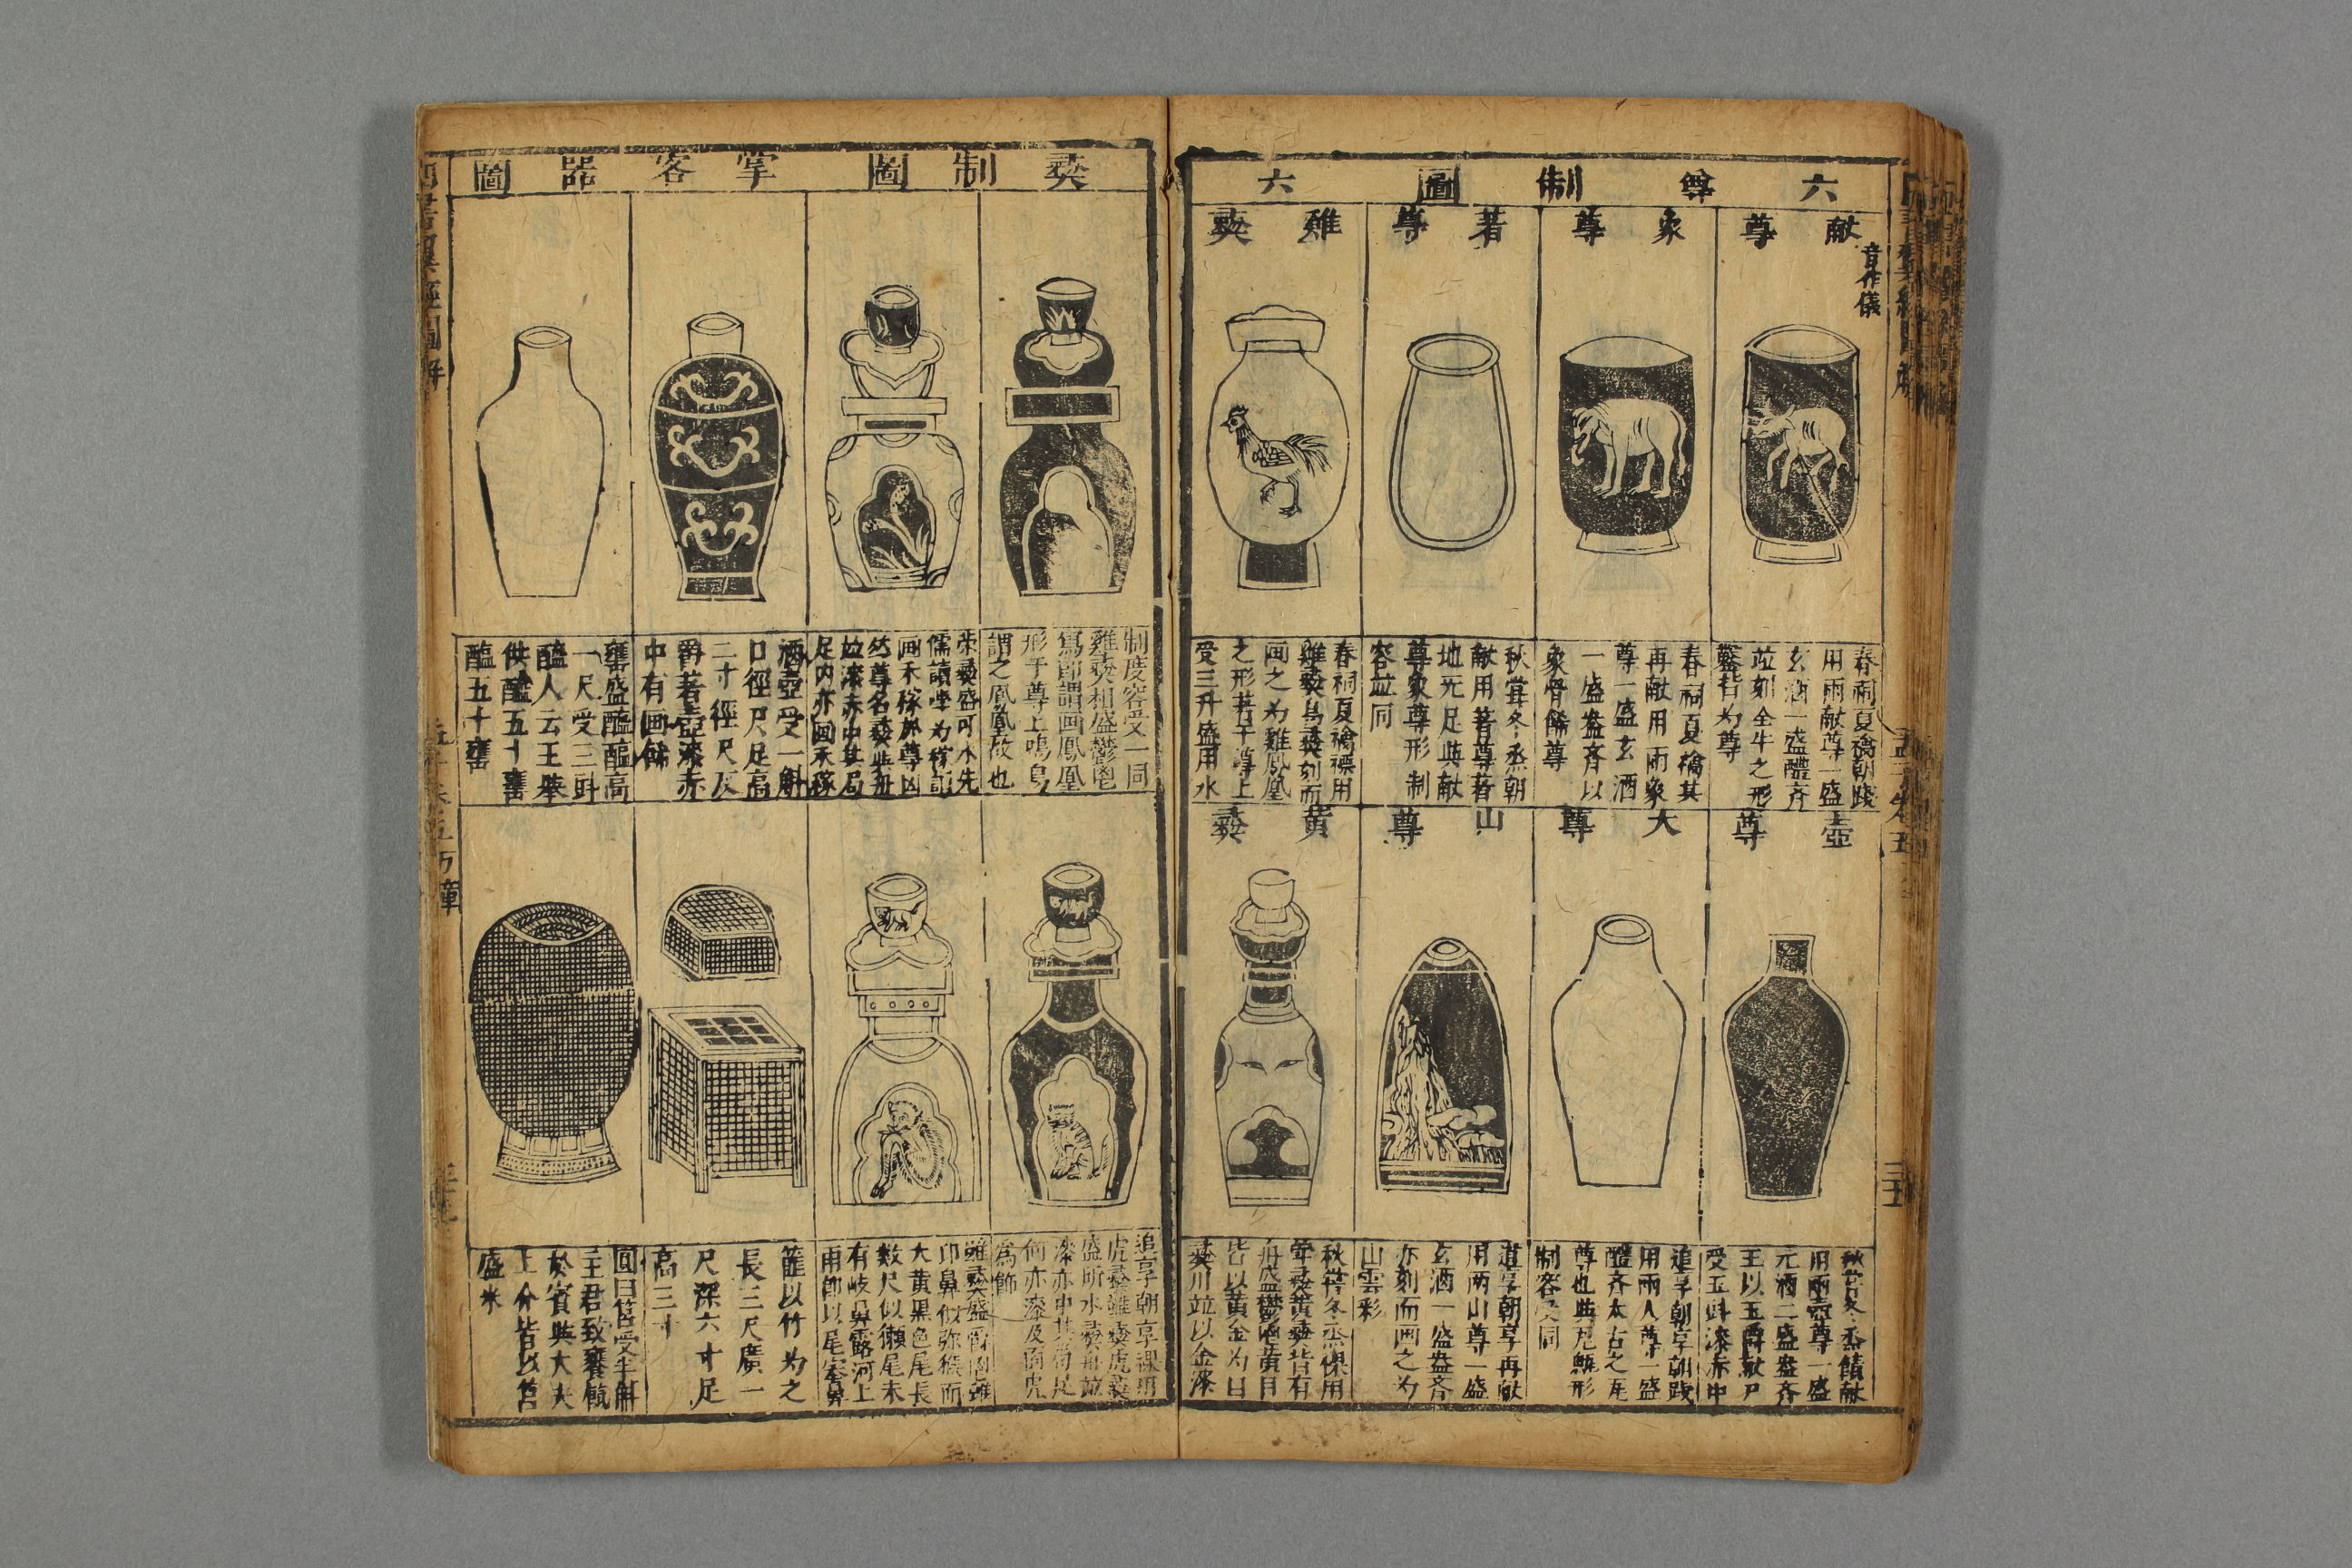 六尊制圖
六
獻尊
音作儀
象尊
著尊
雞彝
春祠夏禴朝踐
用兩獻尊一盛
玄酒一盛醴齊
並刻全牛之形
鑿背为尊
春祠夏禴其
再献用兩象
尊一盛玄酒
一盛盎齊以
象骨餙尊
秋甞冬烝朝
献用著尊著
地无足與献
尊象尊形制
容並同
春祠夏禴祼用
雞彝鳥彝刻而
画之为雞鳳凰
之形著于尊上
受三升盛用水
壺尊
大尊
山尊
黃彝
秋甞冬烝饋献
用兩壺尊一盛
元酒二盛盎齊
王以玉爵献尸
受五斗漆赤中
追享朝享朝践
用兩大尊一盛
醴齊太古之瓦
尊也與瓦甒形
制容受同
追享朝享再献
用两山尊一盛
玄酒一盛盎齐
亦刻而画之为
山雲彩
秋甞冬烝祼用
斝彝黃彝皆有
舟盛鬱鬯黃目
皆以黃金为目
彝川並以金漆
彝制圖
掌客器圖
制度容受一同
雞彝相盛鬱鬯
爲節謂画鳳凰
形于尊上鳴鳥
謂之鳳凰故也
斝彝盛明水先
儒讀斝为稼謂
画禾稼於尊因
为尊名彝與舟
並漆赤中其局
足内亦画禾稼
酒壺受一斛
口徑尺足高
二寸徑尺仄
爵著壺漆赤
中有画餙
甕盛醯醢高
一尺受三斗
醯人云王舉
供醯五十甕
醢五十甕
追享朝享祼用
虎彝蜼彝虎彝
盛明水彝舟並
漆赤中其局足
何亦漆及画虎
為飾
蜼彝盛鬱鬯蜼
卬鼻似弥猴而
大黄黒色尾長
数尺似獺尾末
有岐鼻露河上
雨即以尾塞鼻
篚以竹为之
長三尺廣一
尺深六寸足
高三寸
圓曰筥受半斛
主君致饔餼
於賓與大夫
上介皆以筥
盛米